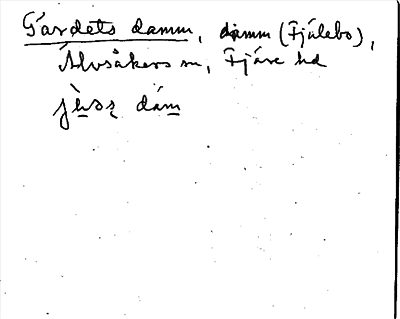 Gärdets damm, damm (Fjälebo),
Älvsåkers sn, Fjäre hd
dám